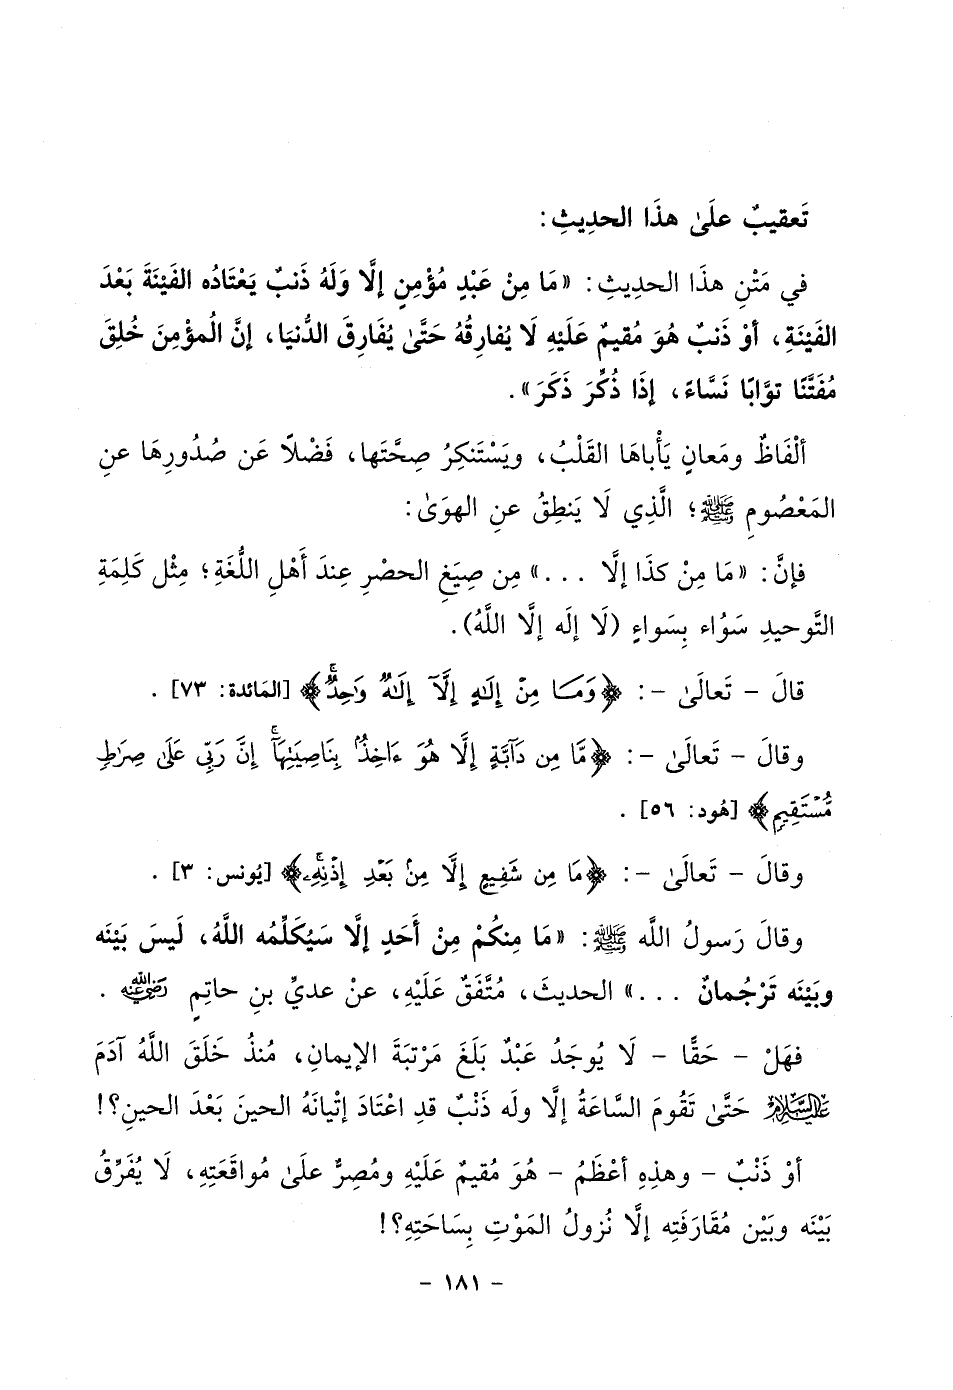 تَعقيبٌ علَىٰ هذَا الحدِيثِ:
في مَتْنِ هذَا الحدِيثِ: «مَا مِنْ عَبْدٍ مُؤْمِنٍ إلَّا وَلَهُ ذَنبٌ يَعْتَادُه الفَيْنَةَ بَعْدَ
الفَيْنَةِ، أوْ ذَنبٌ هُوَ مُقيمٌ عَلَيْهِ لَا يُفارِقُهُ حَتَّىٰ يُفَارِقَ الدُّنيَا، إنَّ الْمؤْمِنَ خُلِقَ
مُفَتَّنًا توَّابًا نَسَّاءً، إذَا ذُكِّرَ ذَكَرَ».
ألْفَاظٌ ومَعانٍ يَأْباهَا القَلْبُ، ويَسْتَنكِرُ صِحَّتَها، فَضْلًا عَن صُدُورِهَا عنِ
المَعْصُومِ ﷺ؛ الَّذِي لَا يَنطِقُ عنِ الهوَىٰ:
فإنَّ: «مَا مِنْ كذَا إلَّا ...» مِن صِيَغِ الحصْرِ عِندَ أهْلِ اللُّغَةِ؛ مِثْل كَلِمَةِ
التَّوحيدِ سَوُاء بِسَواءٍ (لَا إلَه إلَّا اللَّهُ).
قالَ - تَعالَىٰ -: ﴿وَمَا مِنْ إِلَٰهٍ إِلَّآ إِلَٰهٌ وَٰحِدٌۚ﴾ [المَائدة: ٧٣].
وقالَ - تَعالَىٰ -: ﴿مَّا مِن دَآبَّةٍ إِلَّا هُوَ ءَاخِذٌۢ بِنَاصِيَتِهَآۚ إِنَّ رَبِّى عَلَىٰ صِرَٰطٍ
مُّسْتَقِيمٍ﴾ [هُود: ٥٦].
وقالَ - تَعالَىٰ -: ﴿مَا مِن شَفِيعٍ إِلَّا مِنۢ بَعْدِ إِذْنِهِۦۚ﴾ [يُونس: ٣].
وقالَ رَسولُ اللَّه ﷺ: «مَا مِنكُمْ مِنْ أَحَدٍ إلَّا سَيُكَلِّمُه اللَّهُ، لَيسَ بَيْنَه
وبَيْنَه تَرْجُمانٌ ...» الحديثَ، مُتَّفَقٌ عَلَيْهِ، عنْ عديِّ بنِ حاتِمٍ رَضِيَ اللَّهُ عَنْهُ.
فهَلْ - حَقًّا - لَا يُوجَدُ عَبْدٌ بَلَغَ مَرْتبَةَ الإيمانِ، مُنذُ خَلَقَ اللَّهُ آدَمَ
عَلَيْهِ السَّلَامُ حَتَّىٰ تَقُومَ السَّاعَةُ إلَّا ولَه ذَنْبٌ قدِ اعْتَادَ إتْيانَهُ الحينَ بَعْدَ الحينِ؟!
أوْ ذَنْبٌ - وهذِهِ أعْظَمُ - هُوَ مُقيمٌ عَلَيْهِ ومُصِرٌّ علىٰ مُواقَعَتِهِ، لَا يُفَرِّقُ
بَيْنَه وبَيْن مُقَارَفَتِه إلَّا نُزولُ المَوْتِ بِسَاحَتِهِ؟!
- ١٨١ -